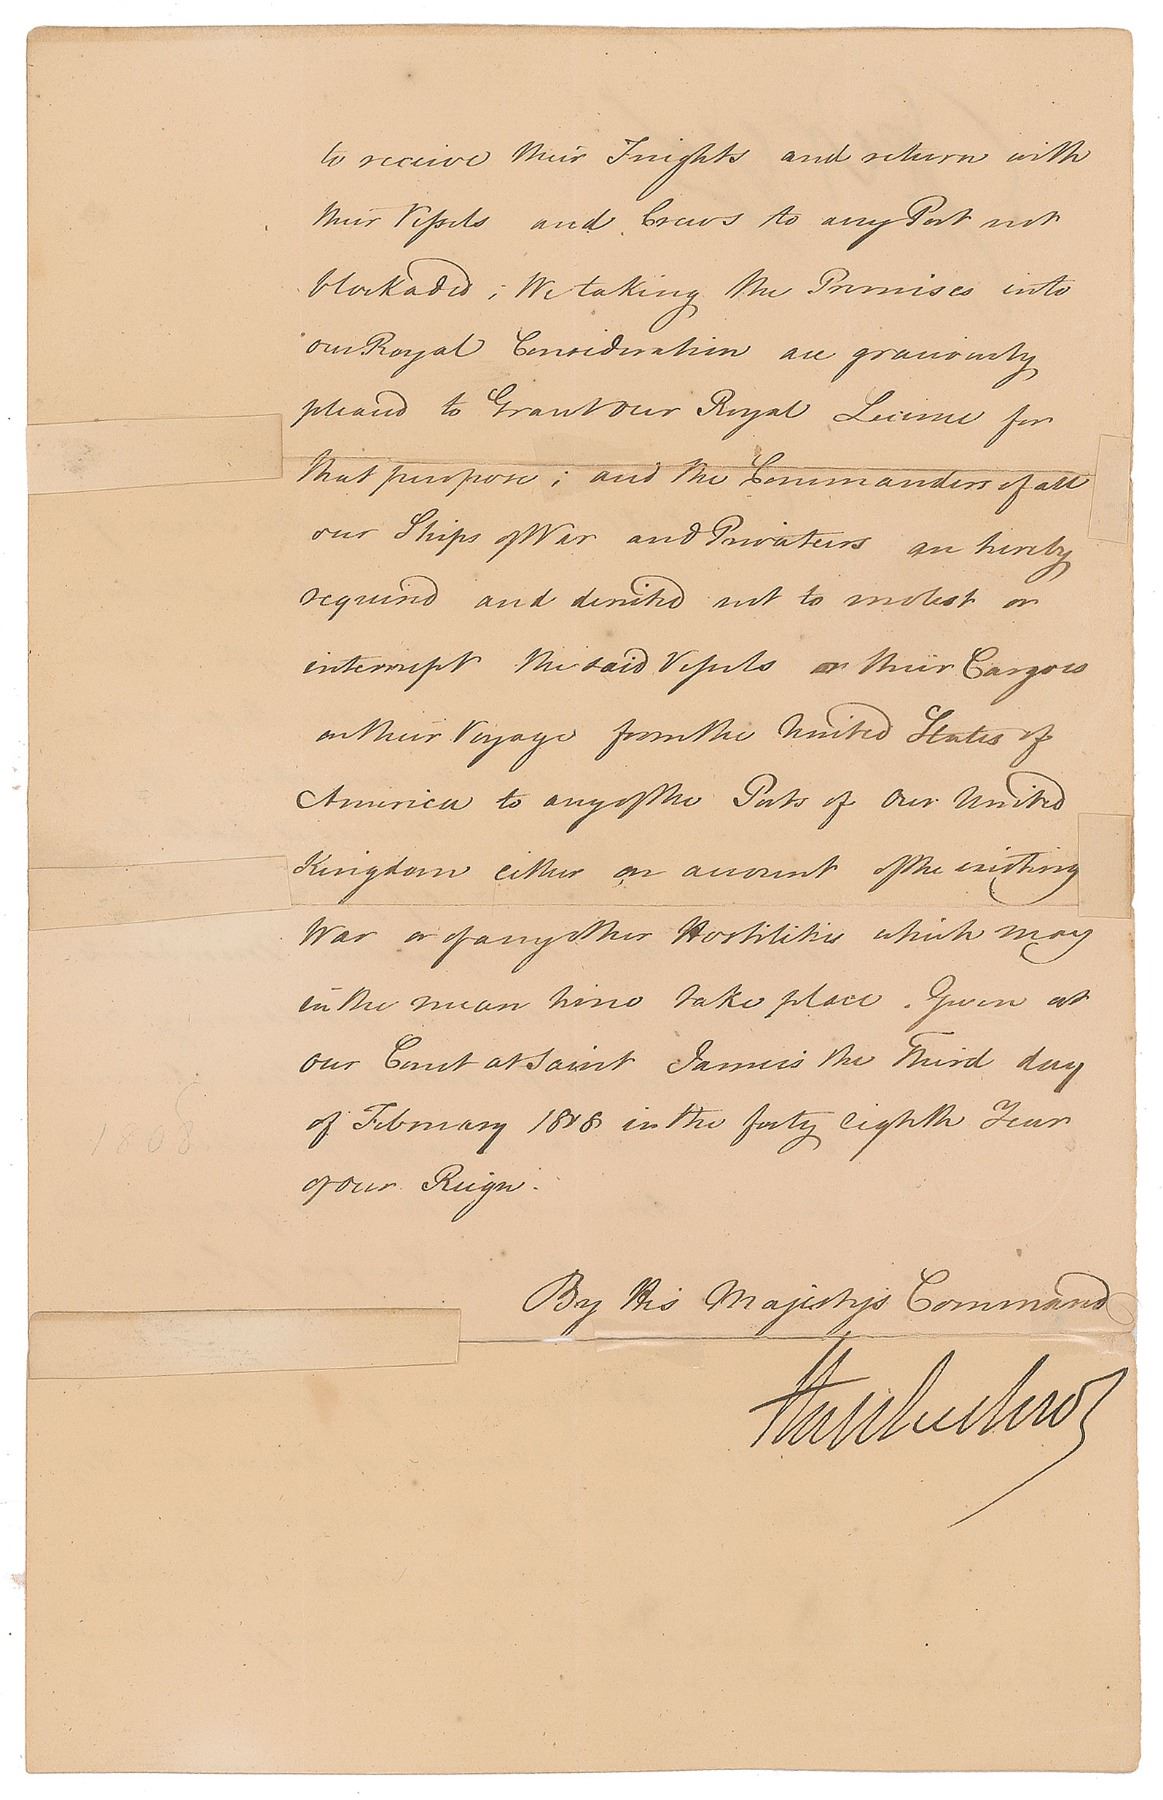 to receive their Freights and return with
their Vessels and Crews to any Port not
blockaded; We taking the Premises into
our Royal Consideration are graciously
pleased to Grant our Royal License for
that purpose; and the Commanders of all
our Ships of War and Privateers are hereby
required and desired not to molest or
interrupt the said Vessels or their Cargoes
on their Voyage from the United States of
America to any of the Ports of Our United
Kingdom either on account of the existing
War or of any other Hostilities which may
in the mean time take place. Given at
our Court at Saint James's the Third day
of February 1808 in the forty eighth Year
of our Reign.
1808
By His Majesty's Command